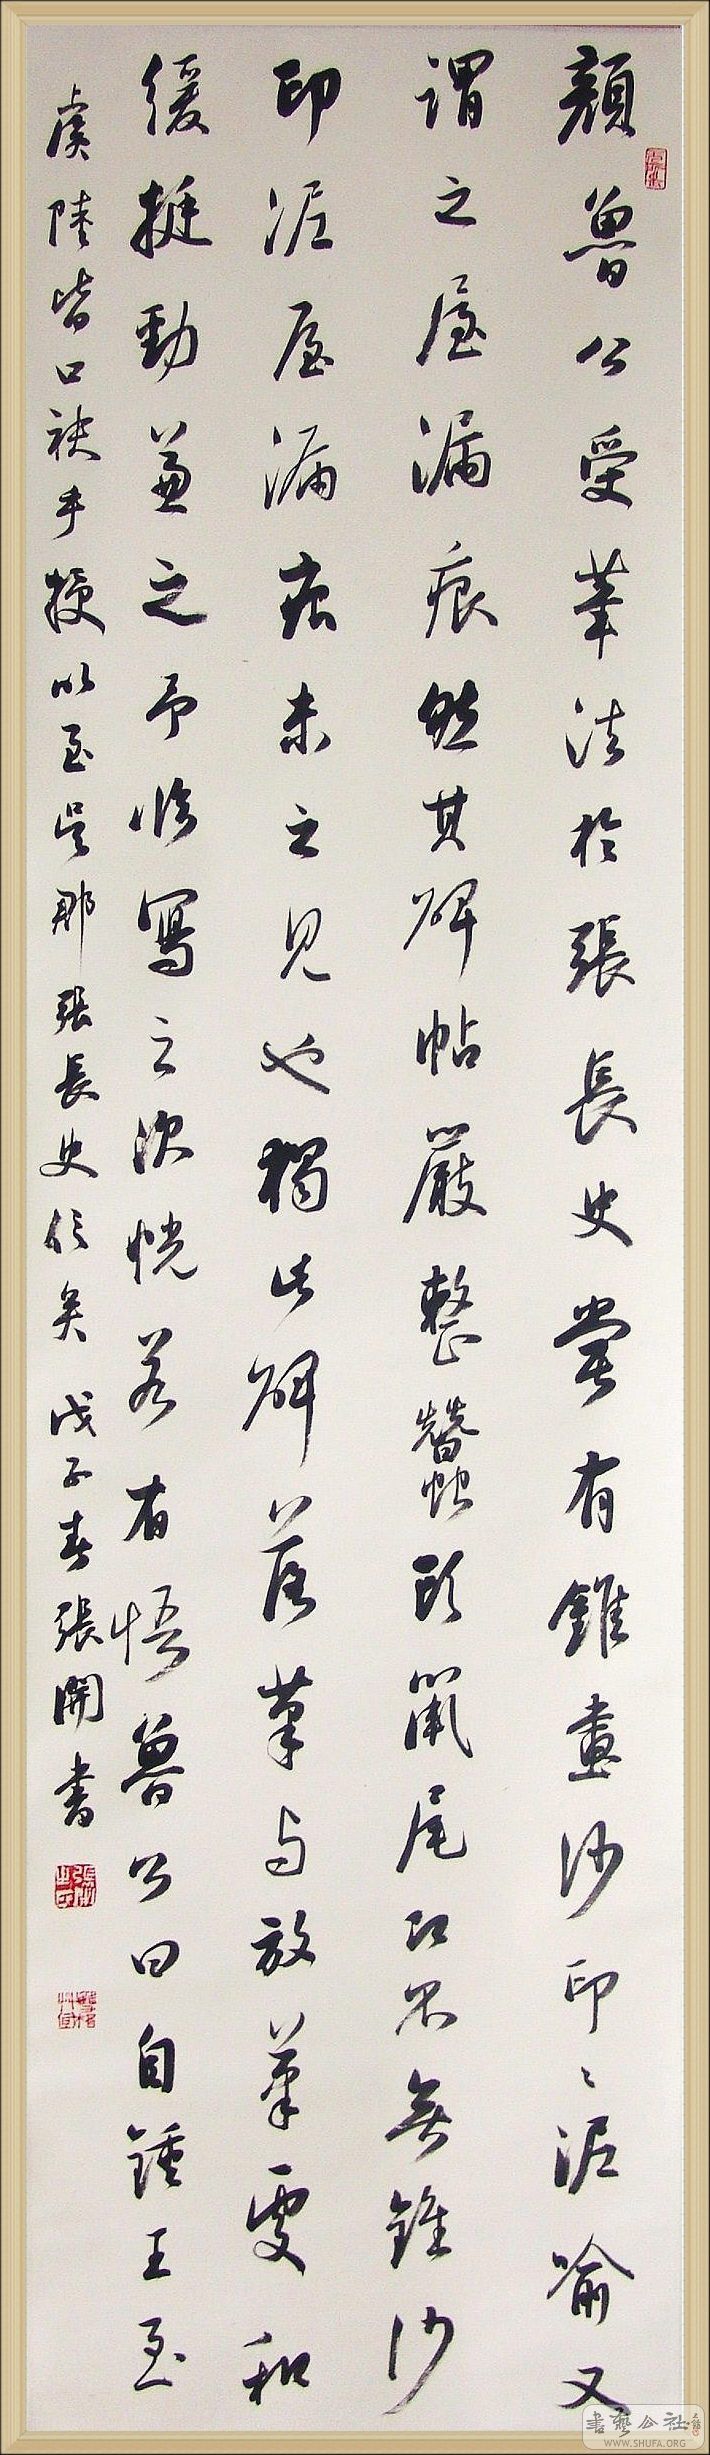 顏魯公受筆法於張長史嘗有錐畫沙印〻泥喻又
謂之屋漏痕然其碑帖嚴整蠶頭鼠尾已不無錐沙
印泥屋漏痕未之見也獨此碑落筆与放筆處和
緩挺勁兼之予臨寫之次恍若有悟魯公曰自鍾王至
虞陸皆口訣手授以至吳郡張長史信矣 戊子春張開書
書藝公社
WWW.SHUFA.ORG